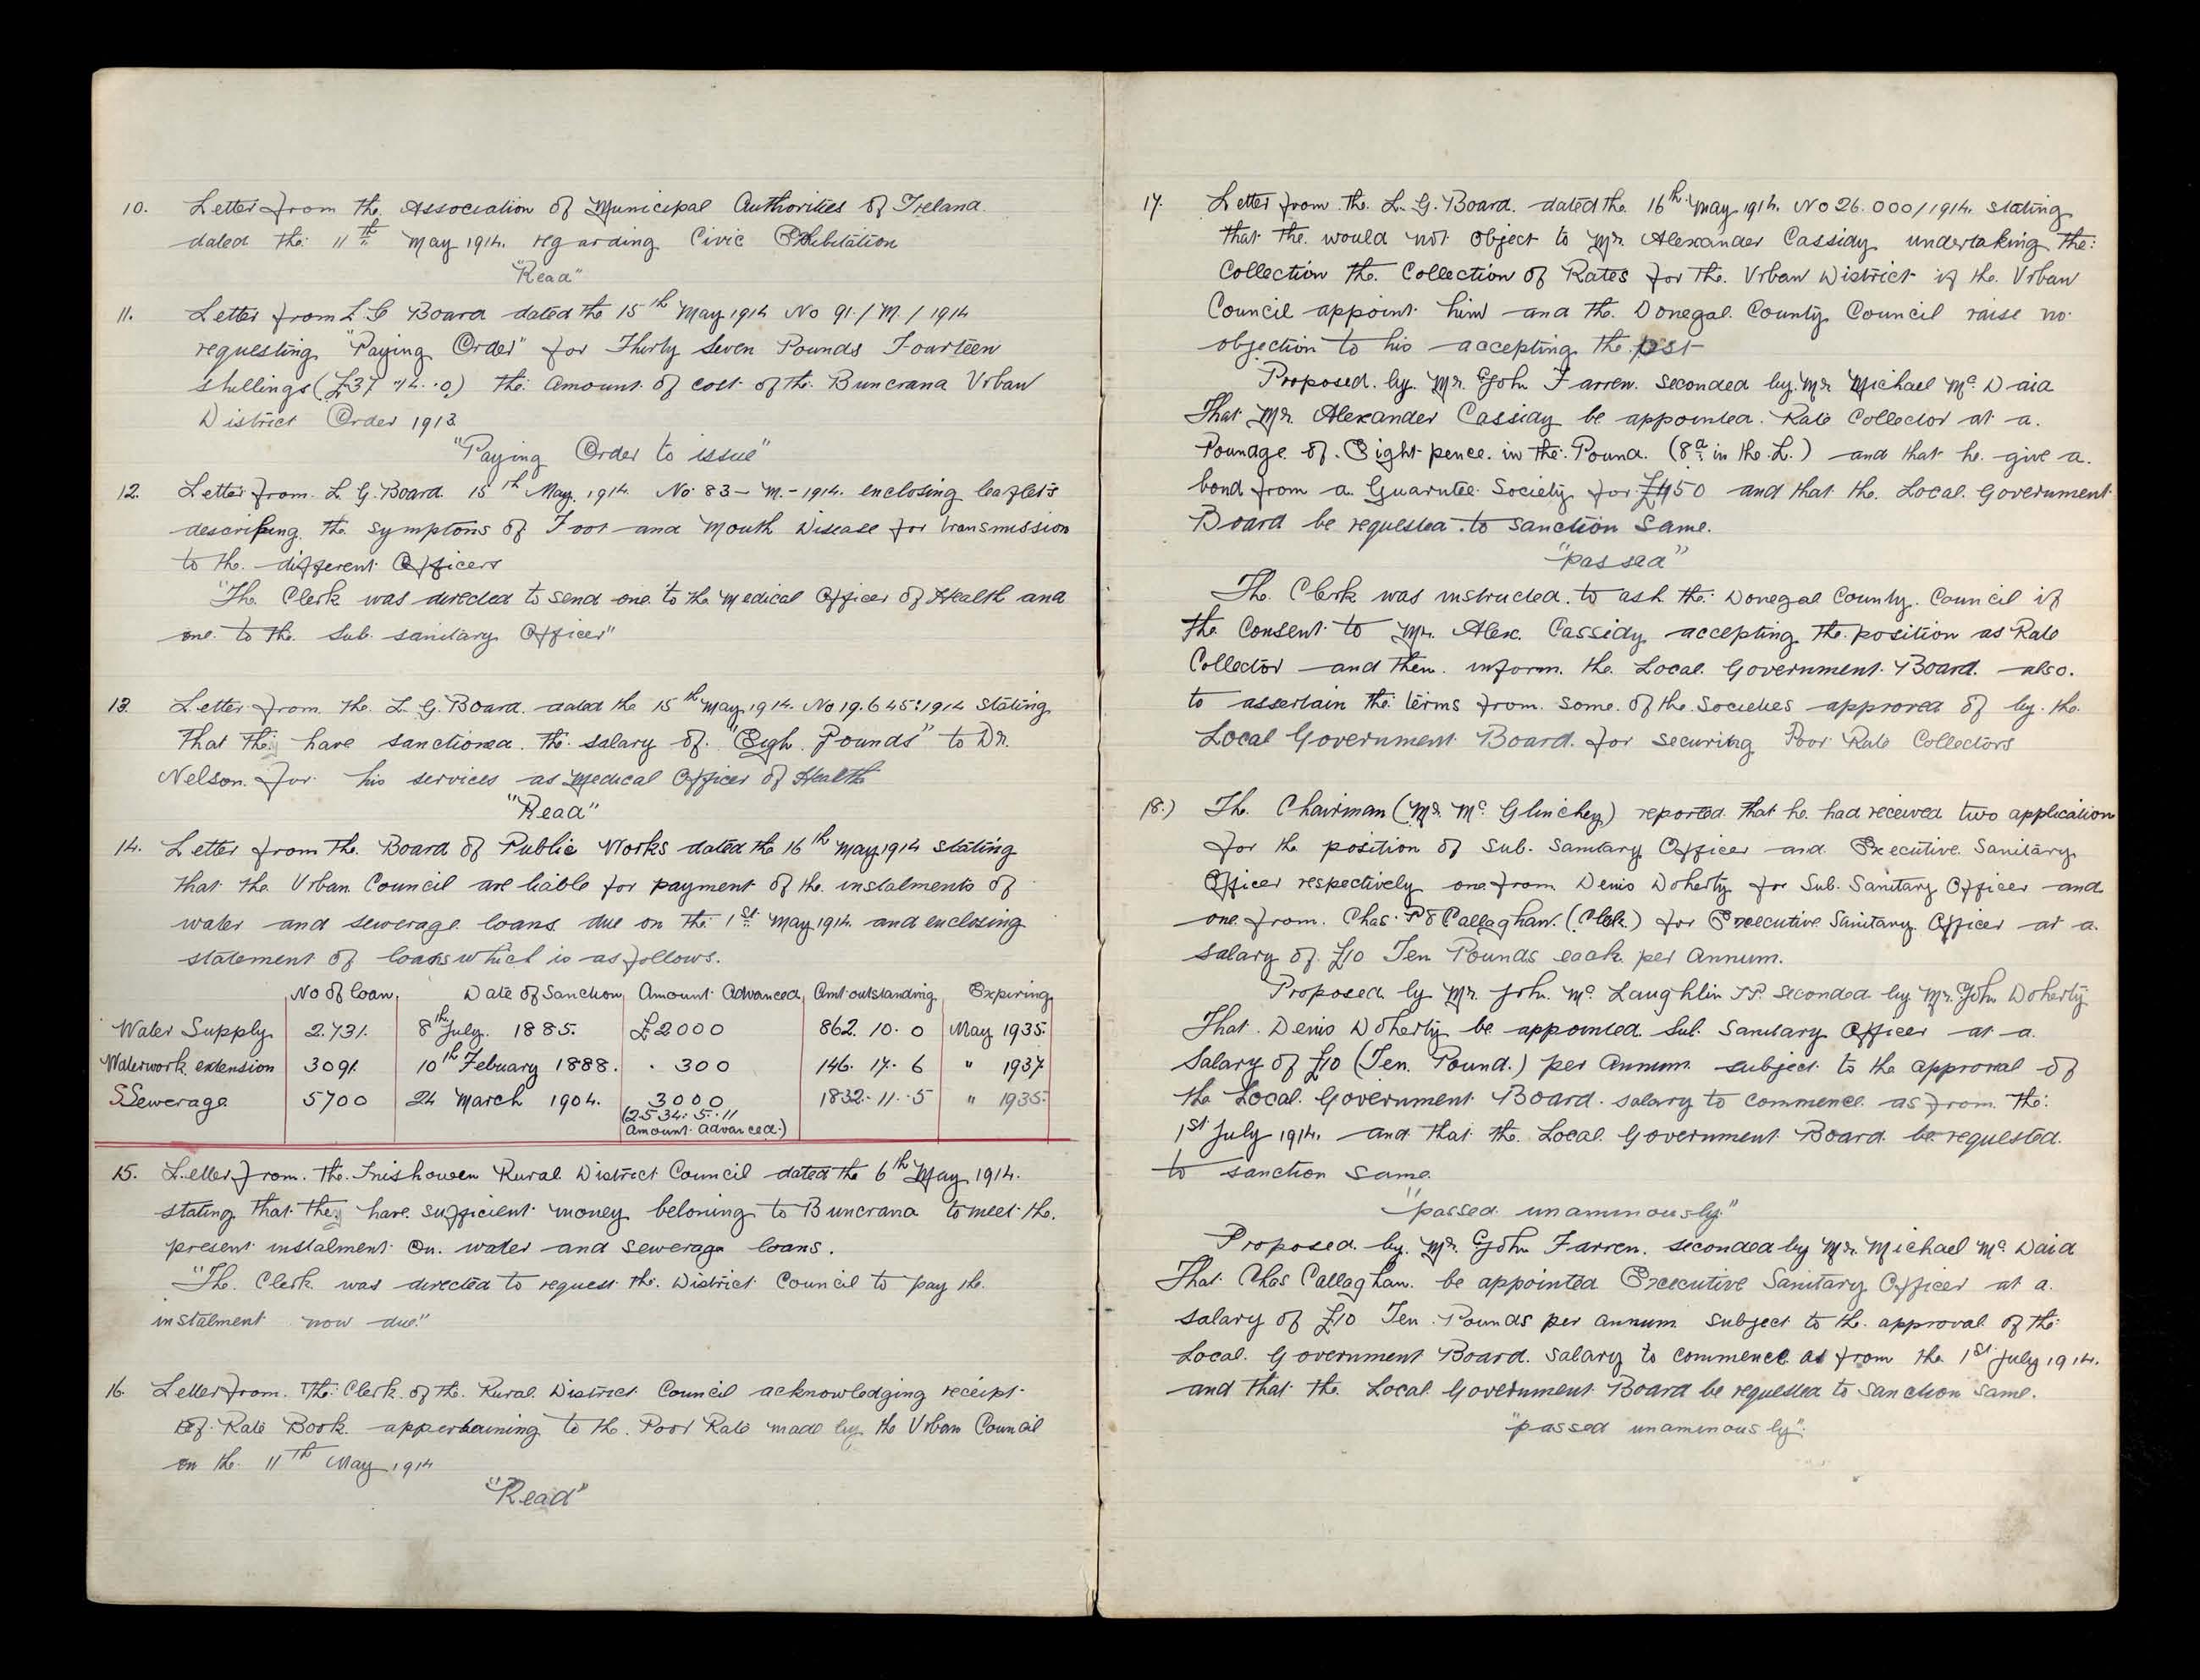 10. Letter from the Association of Municipal Authorities of Ireland
dated the 11th May 1914. regarding Civic Exhibitation
"Read"
11. Letter from L G Board dated the 15th May 1914 No 91/M/1914
requesting "Paying Order" for Thirty Seven Pounds Fourteen
shillings (£37. 14. 0) the amount of cost of the Buncrana Urban
District Order 1913
"Paying Order to issue"
12. Letter from L. G. Board 15th May 1914 No 83-M-1914 enclosing leaflets
describing the symptons of Foot and Mouth Disease for transmission
to the different Officers
"The Clerk was directed to send one to the Medical Officer of Health and
one to the Sub. sanitary Officer"
13. Letter from the L. G. Board dated the 15th May 1914. No 19.645:1914 stating
that the have sanctioned the salary of "Eigh Pounds" to Dr.
Nelson for his services as Medical Officer of Health
"Read"
14. Letter from the Board of Public Works dated the 16th May 1914 stating
that the Urban Council are liable for payment of the instalments of
water and sewerage loans due on the 1st May 1914 and enclosing
statement of loans which is as follows.
No of Loan Date of Sanction Amount Advanced Amt outstanding Expiring
Water Supply 2731. 8th July 1885. £2000 862. 10. 0 May 1935
Waterwork extension 3091. 10th Febuary 1888. 300 146. 17. 6 " 1937
Sewerage 5700 24 March 1904. 3000 1832. 11. 5 " 1935
(2534. 5. 11
amount advanced.)
15. Letter from the Inishowen Rural District Council dated the 6th May 1914.
stating that they have sufficient money beloning to Buncrana to meet the
present instalment on water and sewerage loans.
"The Clerk was directed to request the District Council to pay the
instalment now due"
16. Letter from the Clerk of the Rural District Council acknowledging receipt
of Rate Book appertaining to the Poor Rate made by the Urban Council
on the 11th May 1914
"Read"
17. Letter from the L. G. Board. dated the 16th May 1914. No 26.000/1914. stating
that the would not object to Mr. Alexander Cassidy undertaking the
Collection the Collection of Rates for the Urban District if the Urban
Council appoint him and the Donegal County Council raise no
objection to his accepting the post
Proposed by Mr. John Farren seconded by Mr Michael Mc Daid
That Mr. Alexander Cassidy be appointed Rate Collector at a
Poundage of Eight pence in the Pound (8d in the £.) and that he give a
bond from a Guarntee Society for £450 and that the Local Government
Board be requested to sanction same.
"passed"
The Clerk was instructed to ask the Donegal County Council if
the consent to Mr. Alex. Cassidy accepting the position as Rate
Collector and then inform the Local Government Board also.
to assertain the terms from some of the Societies approved of by the
Local Government Board for securitng Poor Rate Collectors
18.) The Chairman (Mr. Mc Glinchey) reported that he had received two application
for the position of Sub. Sanitary Officer and Executive Sanitary
Officer respectively one from Denis Doherty for Sub. Sanitary Officer and
one from Chas. P O Callaghan (Clerk) for Executive Sanitary Officer at a
salary of £10 Ten Pounds each per annum.
Proposed by Mr. John Mc Laughlin J.P. seconded by Mr. John Doherty
That Denis Doherty be appointed Sub. Sanitary Officer at a
salary of £10 (Ten Pound.) per annum subject to the approval of
the Local Government Board. salary to commence as from the
1st July 1914. and that the Local Government Board be requested
to sanction same.
"passed unaminously"
Proposed by Mr. John Farren seconded by Mr. Michael Mc Daid
That Chas Callaghan be appointed Executive Sanitary Officer at a
salary of £10 Ten Pounds per annum subject to the approval of the
Local Government Board. salary to commence as from the 1st July 1914.
and that the Local Government Board be requested to sanction same.
"passed unaminously"